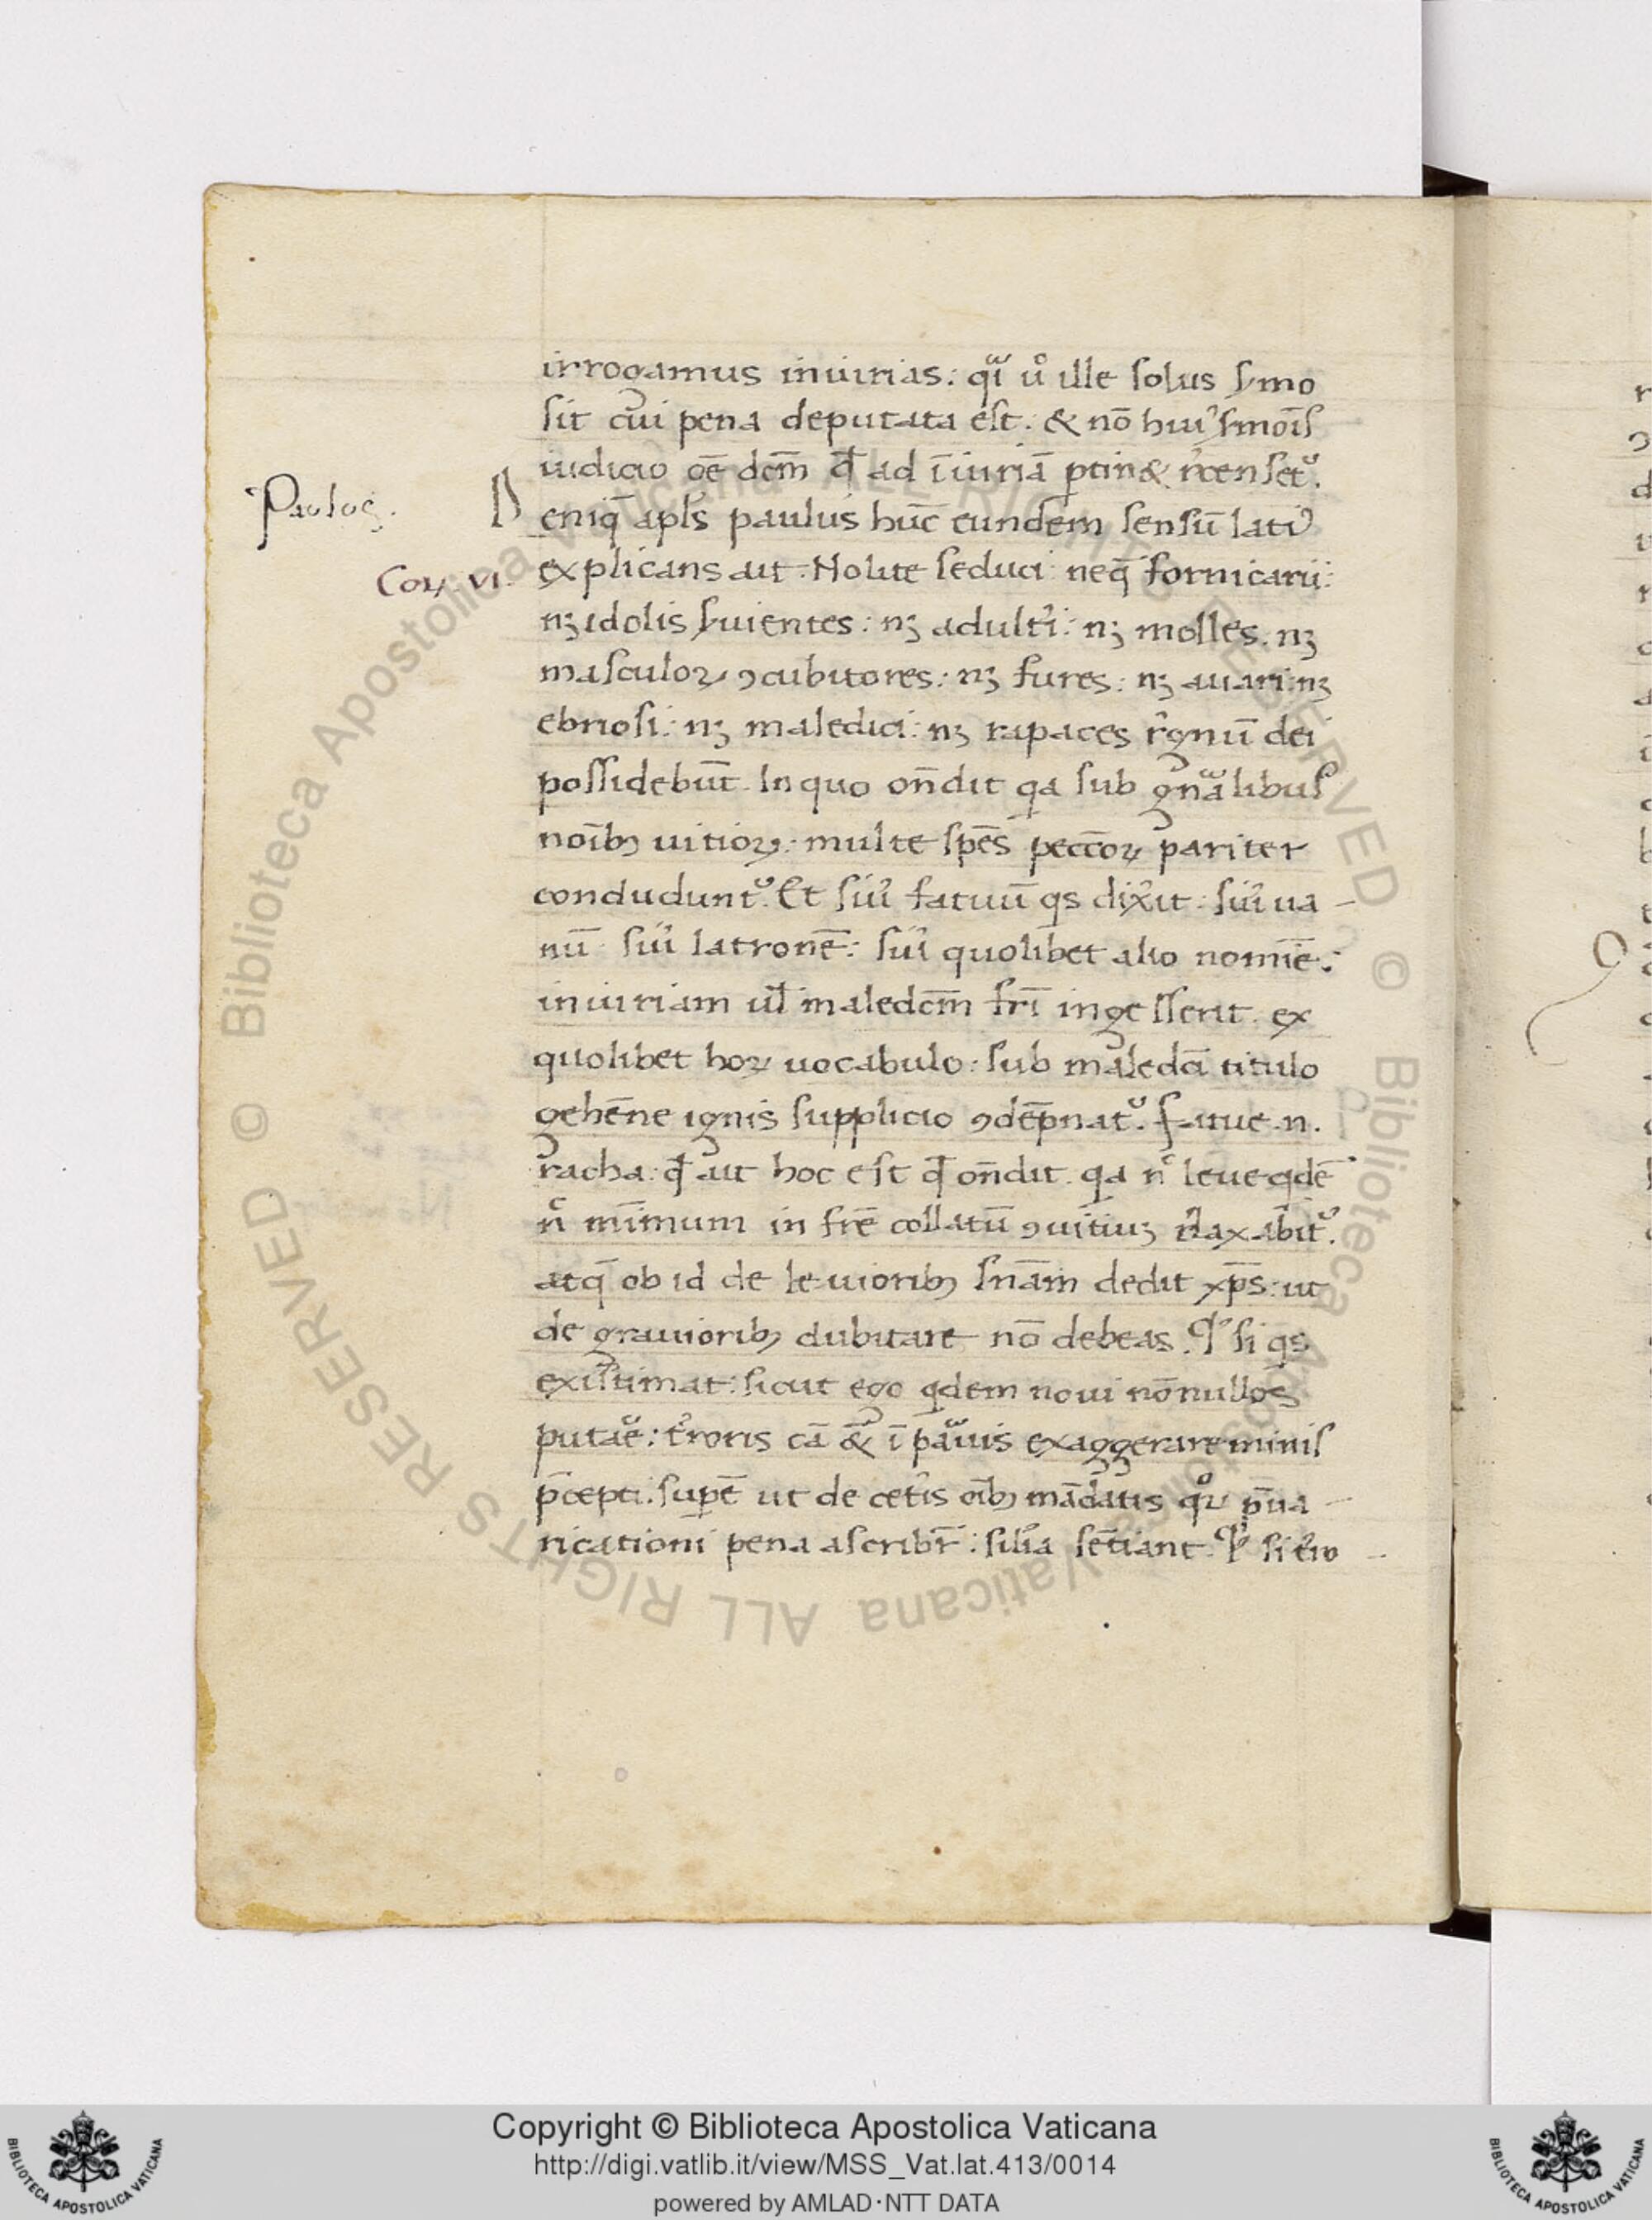 irrogamus iniurias: qͣi uͦ ille solus ẜmo
sit cui pena deputata est. & nō huiꝰsmōis
iudicio oē dcm̄ qđ ad īiuriā ꝑtin& r̓censet᷑.
Paulus.
Deniq̄ apl̄s paulus hūc eundem sensū latiꝰ
Coꝝ. VI.
explicans ait. Nolite seduci: neq̄ fornicarii:
nꝫ idolis ẜuientes: nꝫ adult̓i: nꝫ molles. nꝫ
masculoꝝ ꝯcubitores: nꝫ fures: nꝫ auari: nꝫ
ebriosi: nꝫ maledici: nꝫ rapaces r̓gnū dei
possidebūt. In quo on̄dit qa sub gn̄ͣalibus
noībꝫ uitioꝝ: multe spēs peccōꝝ pariter
concludunt᷑. Et siu̓ fatuū qs dix̓it: siu̓ ua-
nū siu̓ latronē: siu̓ quolibet alio nomīe:
iniuriam ul̄ maledcm̄ fr̄i ingesserit. ex
quolibet hoꝝ uocabulo: sub maledc̄i titulo
gehēne ignis supplicio ꝯdēpnat᷑. Fatue .n.
racha: qđ aut hoc est qđ on̄dit. qa nͨ leue qdē
nͨ mīmum in fr̄e collatū ꝯuitiuꝫ r̓laxabit᷑.
atq̄ ob id de leuioribꝫ sn̄am dedit xp̄s: ut
de grauioribꝫ dubitare nō debeas. Qđ si qs
existimat: sicut ego qdem noui nōnullos
putaͬe: t̓roris cā & ī paͬuis exaggerare minis
p̄cepti. supē ut de cet̓is oībꝫ mādatis qͦꝝ p̄ua-
ricationi pena ascribr̄: sil̓ia sētiant. Qđ si t̓ro-
Copyright © Biblioteca Apostolica Vaticana
http://digi.vatlib.it/view/MSS_Vat.lat.413/0014
powered by AMLAD·NTT DATA